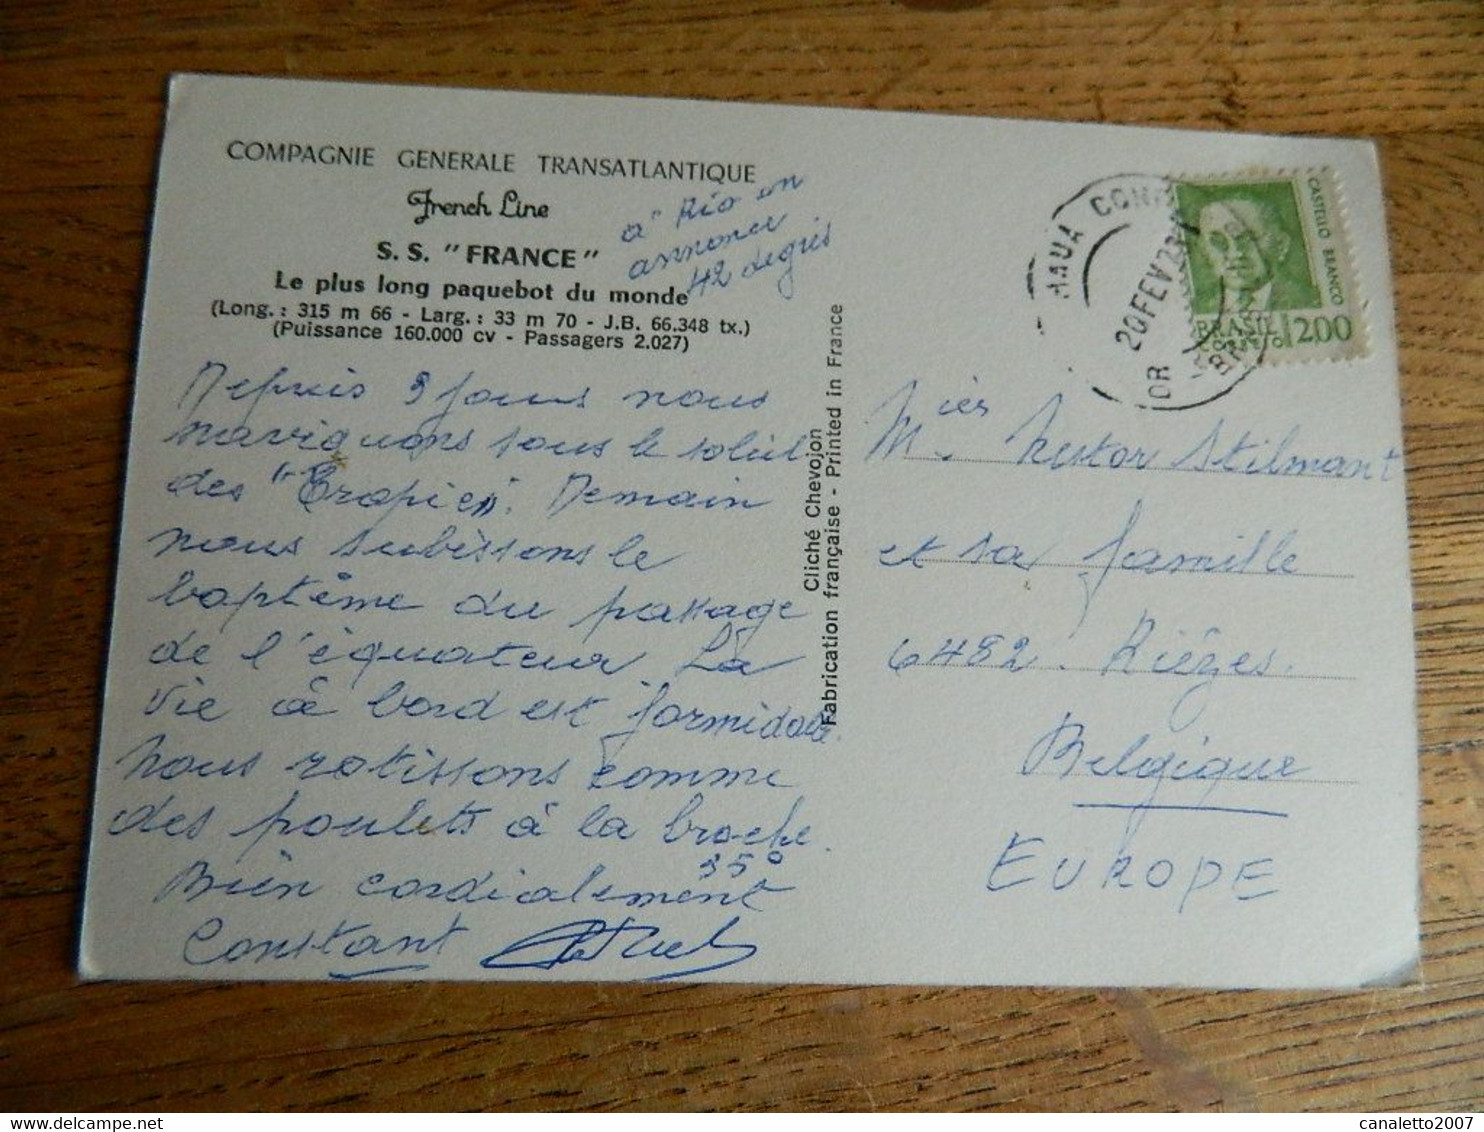 COMPAGNIE GENERALE TRANSATLANTIQUE
French Line
S. S. "FRANCE"
Le plus long paquebot du monde
(Long. : 315 m 66 - Larg. : 33 m 70 - J.B. 66.348 tx.)
(Puissance 160.000 cv - Passagers 2.027)
à Rio on
annonce
42 degrés
Depuis 9 jours nous
naviguons sous le soleil
des "Tropiques". Demain
nous subissons le
baptême du passage
de l'équateur La
vie à bord est formidable.
nous rotissons comme
des poulets à la broche.
35°
Bien cordialement
Constant
Cliché Chevojon
Fabrication française - Printed in France
MAUA
20 FEV 73
CASTELLO BRANCO
BRASIL 2,00
CORREIO
Mr. Nestor Stilmant
et sa famille
6482. Rièzes.
Belgique
EUROPE
canaletto2007